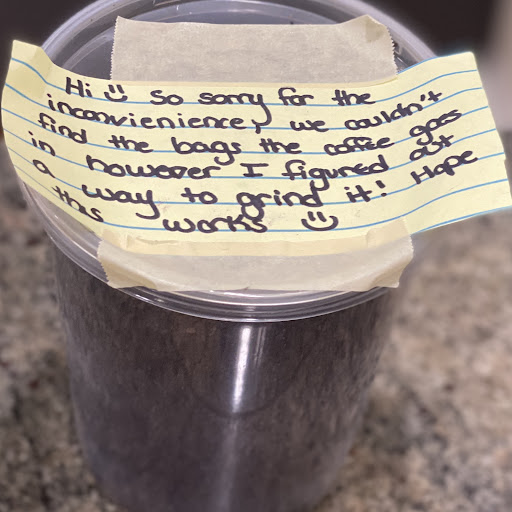 Hi :) So sorry for the
inconvienience, we couldn't
find the bags the coffee goes
in however I figured out
a way to grind it! Hope
this works :)